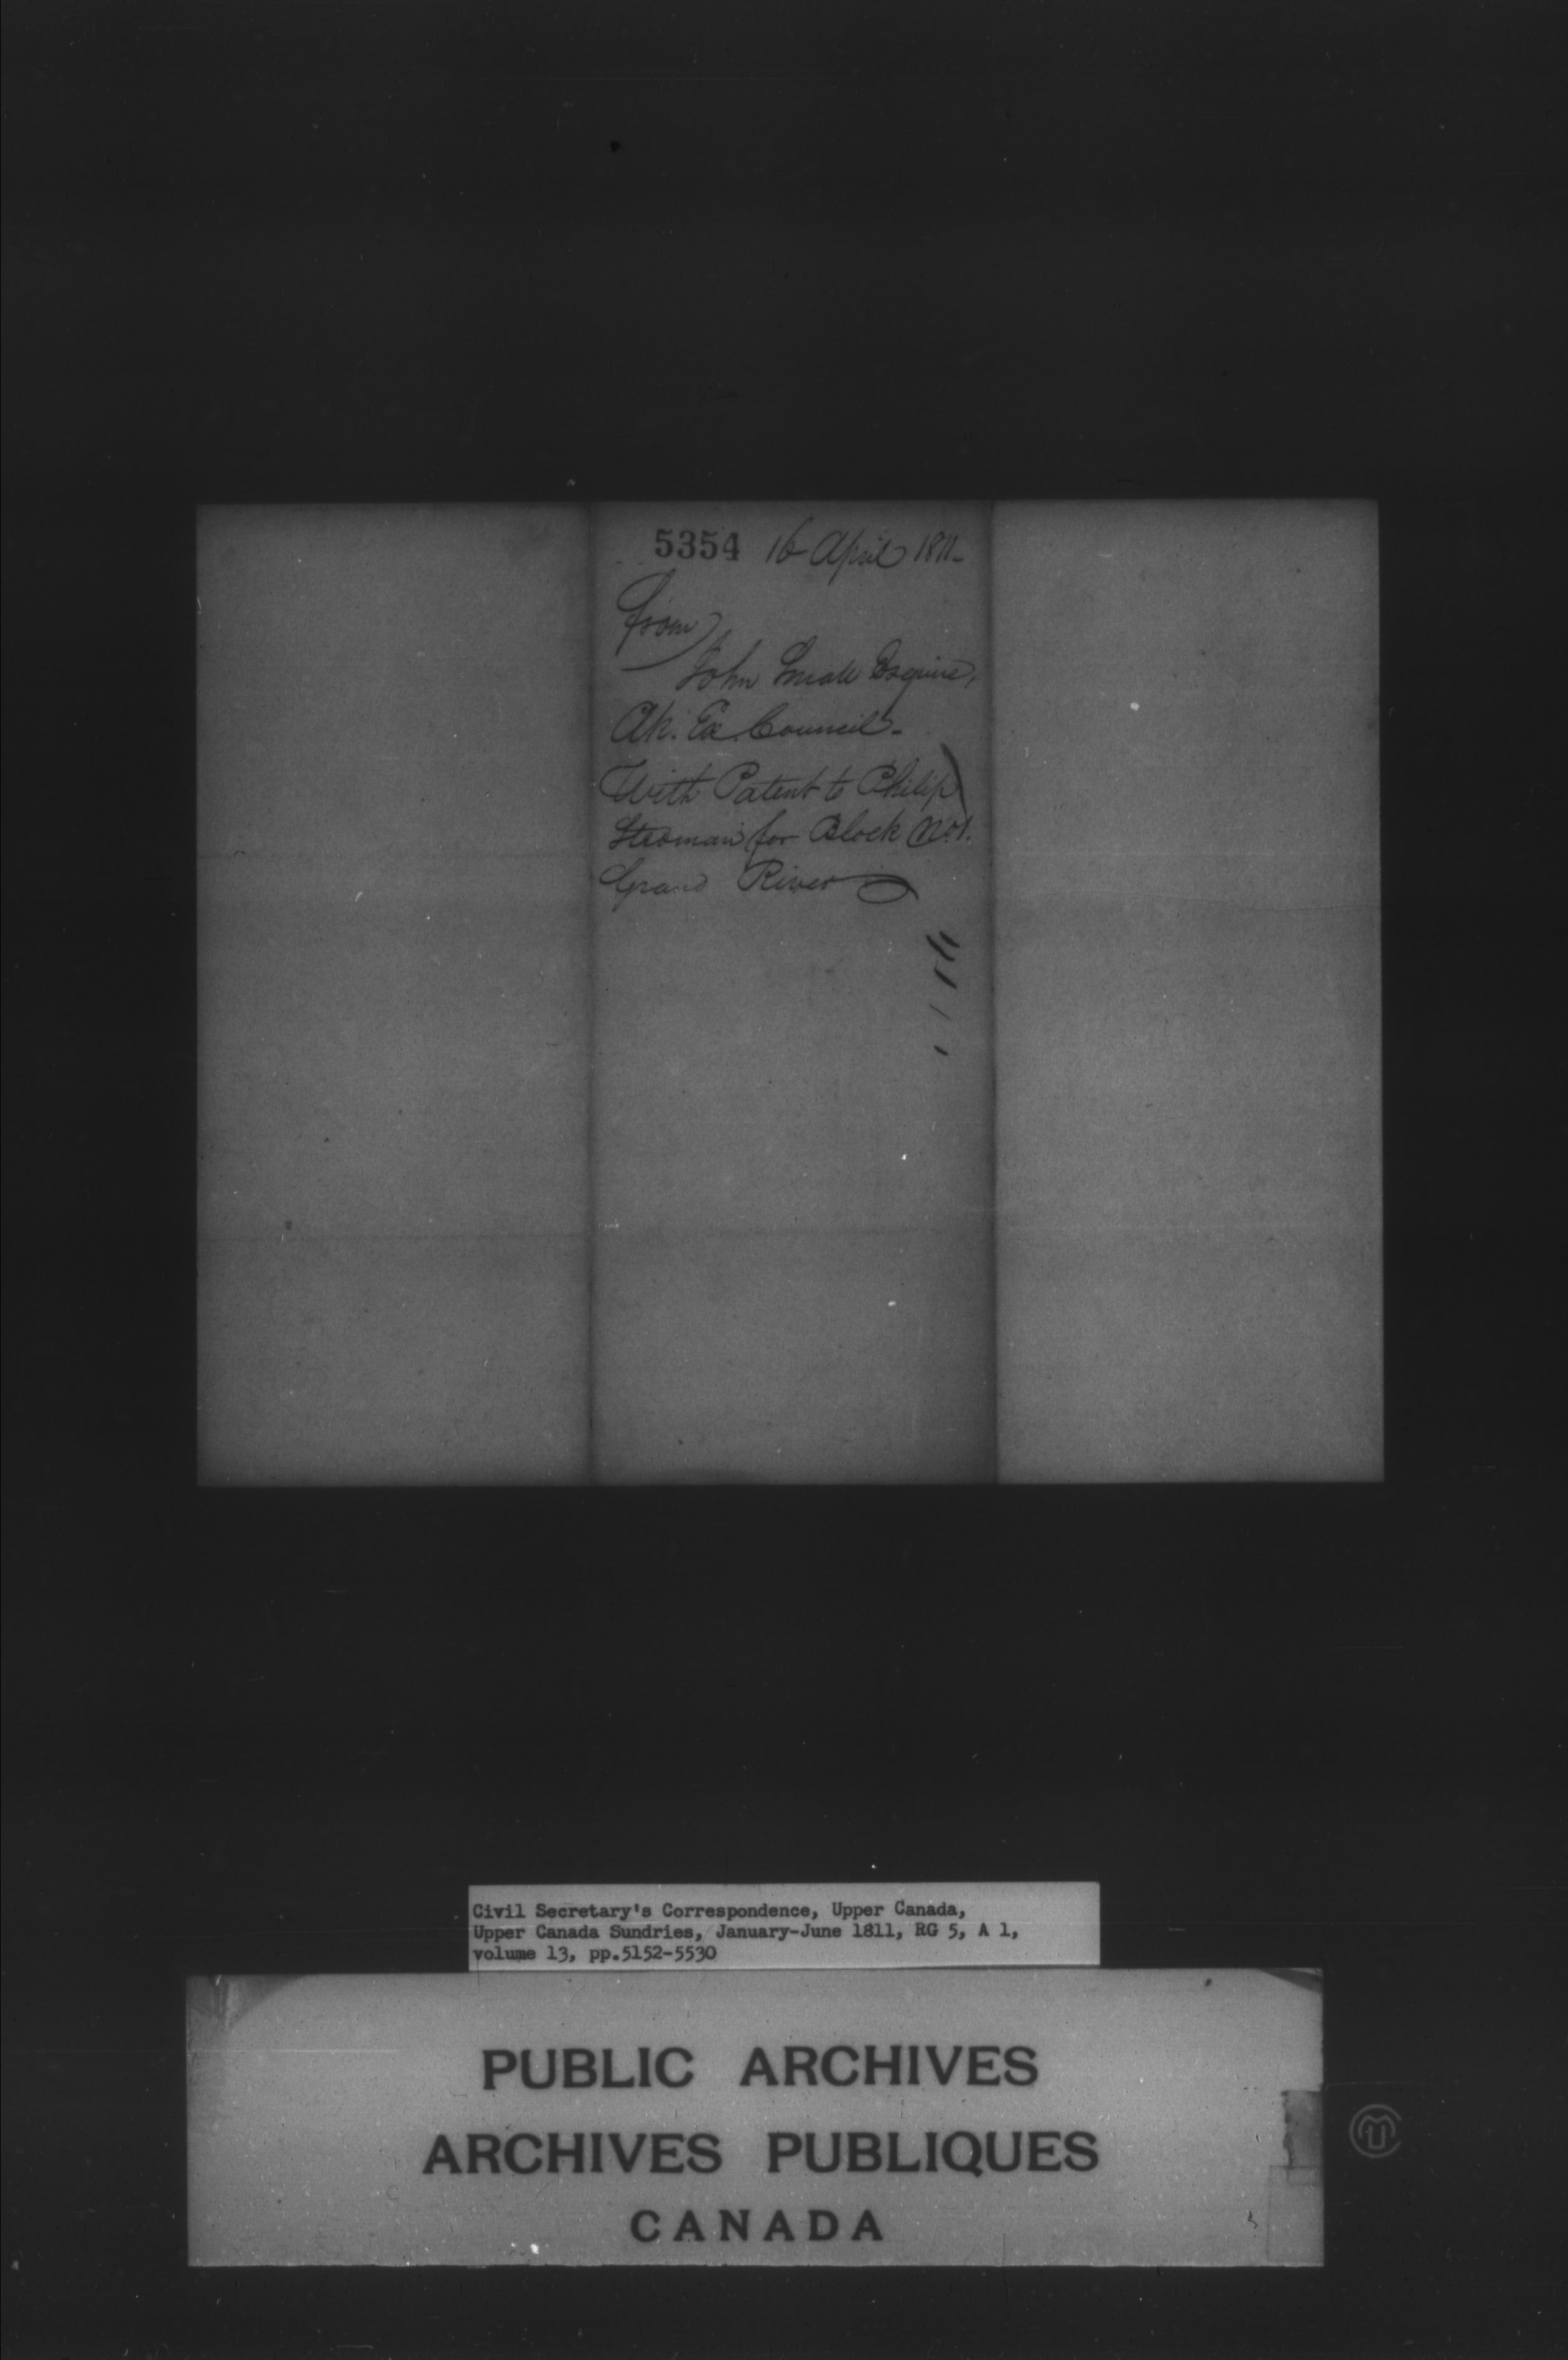 5354 16 April 1811-
From
John Small Esquire,
Clk. Ex. Council-
With Patent to Philip
Stedman for Block No 1.
Grand River
Civil Secretary's Correspondence, Upper Canada,
Upper Canada Sundries, January-June 1811, RG 5, A 1,
volume 13, pp.5152-5530
PUBLIC ARCHIVES
ARCHIVES PUBLIQUES
CANADA